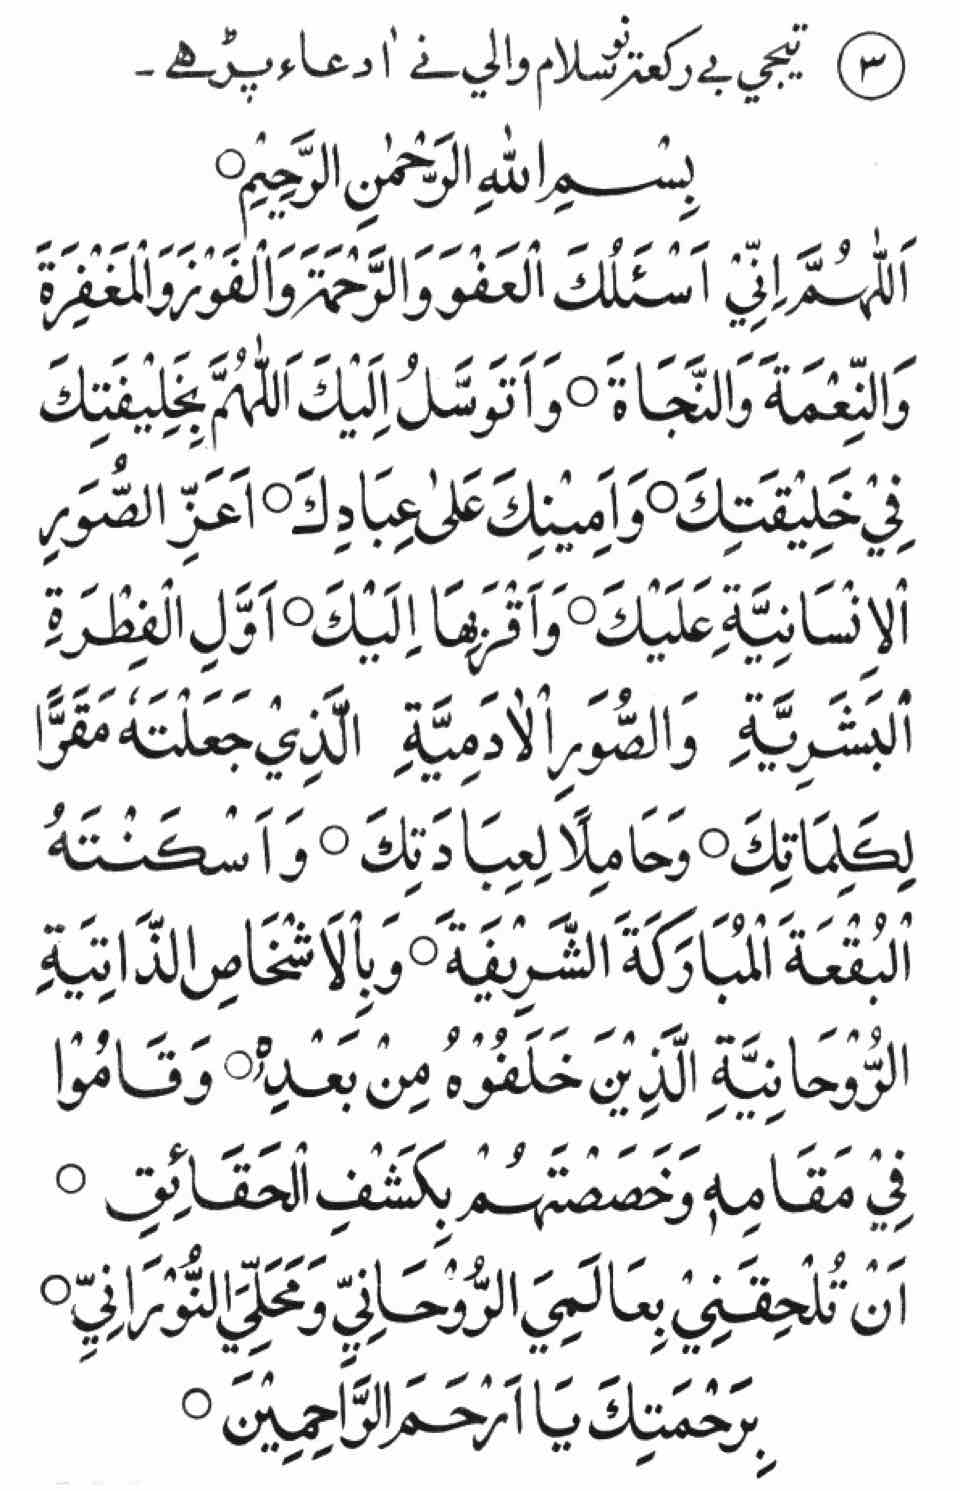 ٣ تيجي بے ركعتر نو سلام والي نے ا دعاء پڑهے ـ
بِسْمِ اللهِ الرَّحْمٰنِ الرَّحِيْمِ○
اَللّٰهُمَّ اِنِّيْ اَسْئَلُكَ الْعَفْوَ وَالرَّحْمَةَ وَالْفَوْزَ وَالْمَغْفِرَةَ
وَالنِّعْمَةَ وَالنَّجَاةَ○ وَاَتَوَسَّلُ اِلَيْكَ اَللّٰهُمَّ بِخَلِيْفَتِكَ
فِيْ خَلِيْقَتِكَ○ وَاَمِيْنِكَ عَلٰى عِبَادِكَ○ اَعَزِّ الصُّوَرِ
الْاِنْسَانِيَّةِ عَلَيْكَ○ وَاَقْرَبِهَا اِلَيْكَ○ اَوَّلِ الْفِطْرَةِ
الْبَشَرِيَّةِ وَالصُّوَرِ الْاٰدَمِيَّةِ الَّذِيْ جَعَلْتَهٗ مَقَرًّا
لِكَلِمَاتِكَ○ وَحَامِلًا لِعِبَادَتِكَ○ وَاَسْكَنْتَهُ
الْبُقْعَةَ الْمُبَارَكَةَ الشَّرِيْفَةَ○ وَبِالْاَشْخَاصِ الذَّاتِيَةِ
الرُّوْحَانِيَّةِ الَّذِيْنَ خَلَفُوْهُ مِنْ بَعْدِهٖ○ وَقَامُوْا
فِيْ مَقَامِهٖ وَخَصَصْتَهُمْ بِكَشْفِ الْحَقَائِقِ○
اَنْ تُلْحِقَنِيْ بِعَالَمِيَ الرُّوْحَانِيِّ وَمَحَلِّيَ النُّوْرَانِيِّ○
بِرَحْمَتِكَ يَا اَرْحَمَ الرَّاحِمِيْنَ○